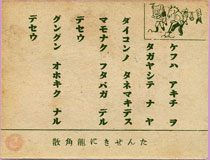 ケフハ アキチ ヲ
タガヤシテ ナヤ
ダイコンノ タネマキデス
マモナク フタバガ デル
デセウ
グングン オホキク ナル
デセウ
散角龍にきせんた